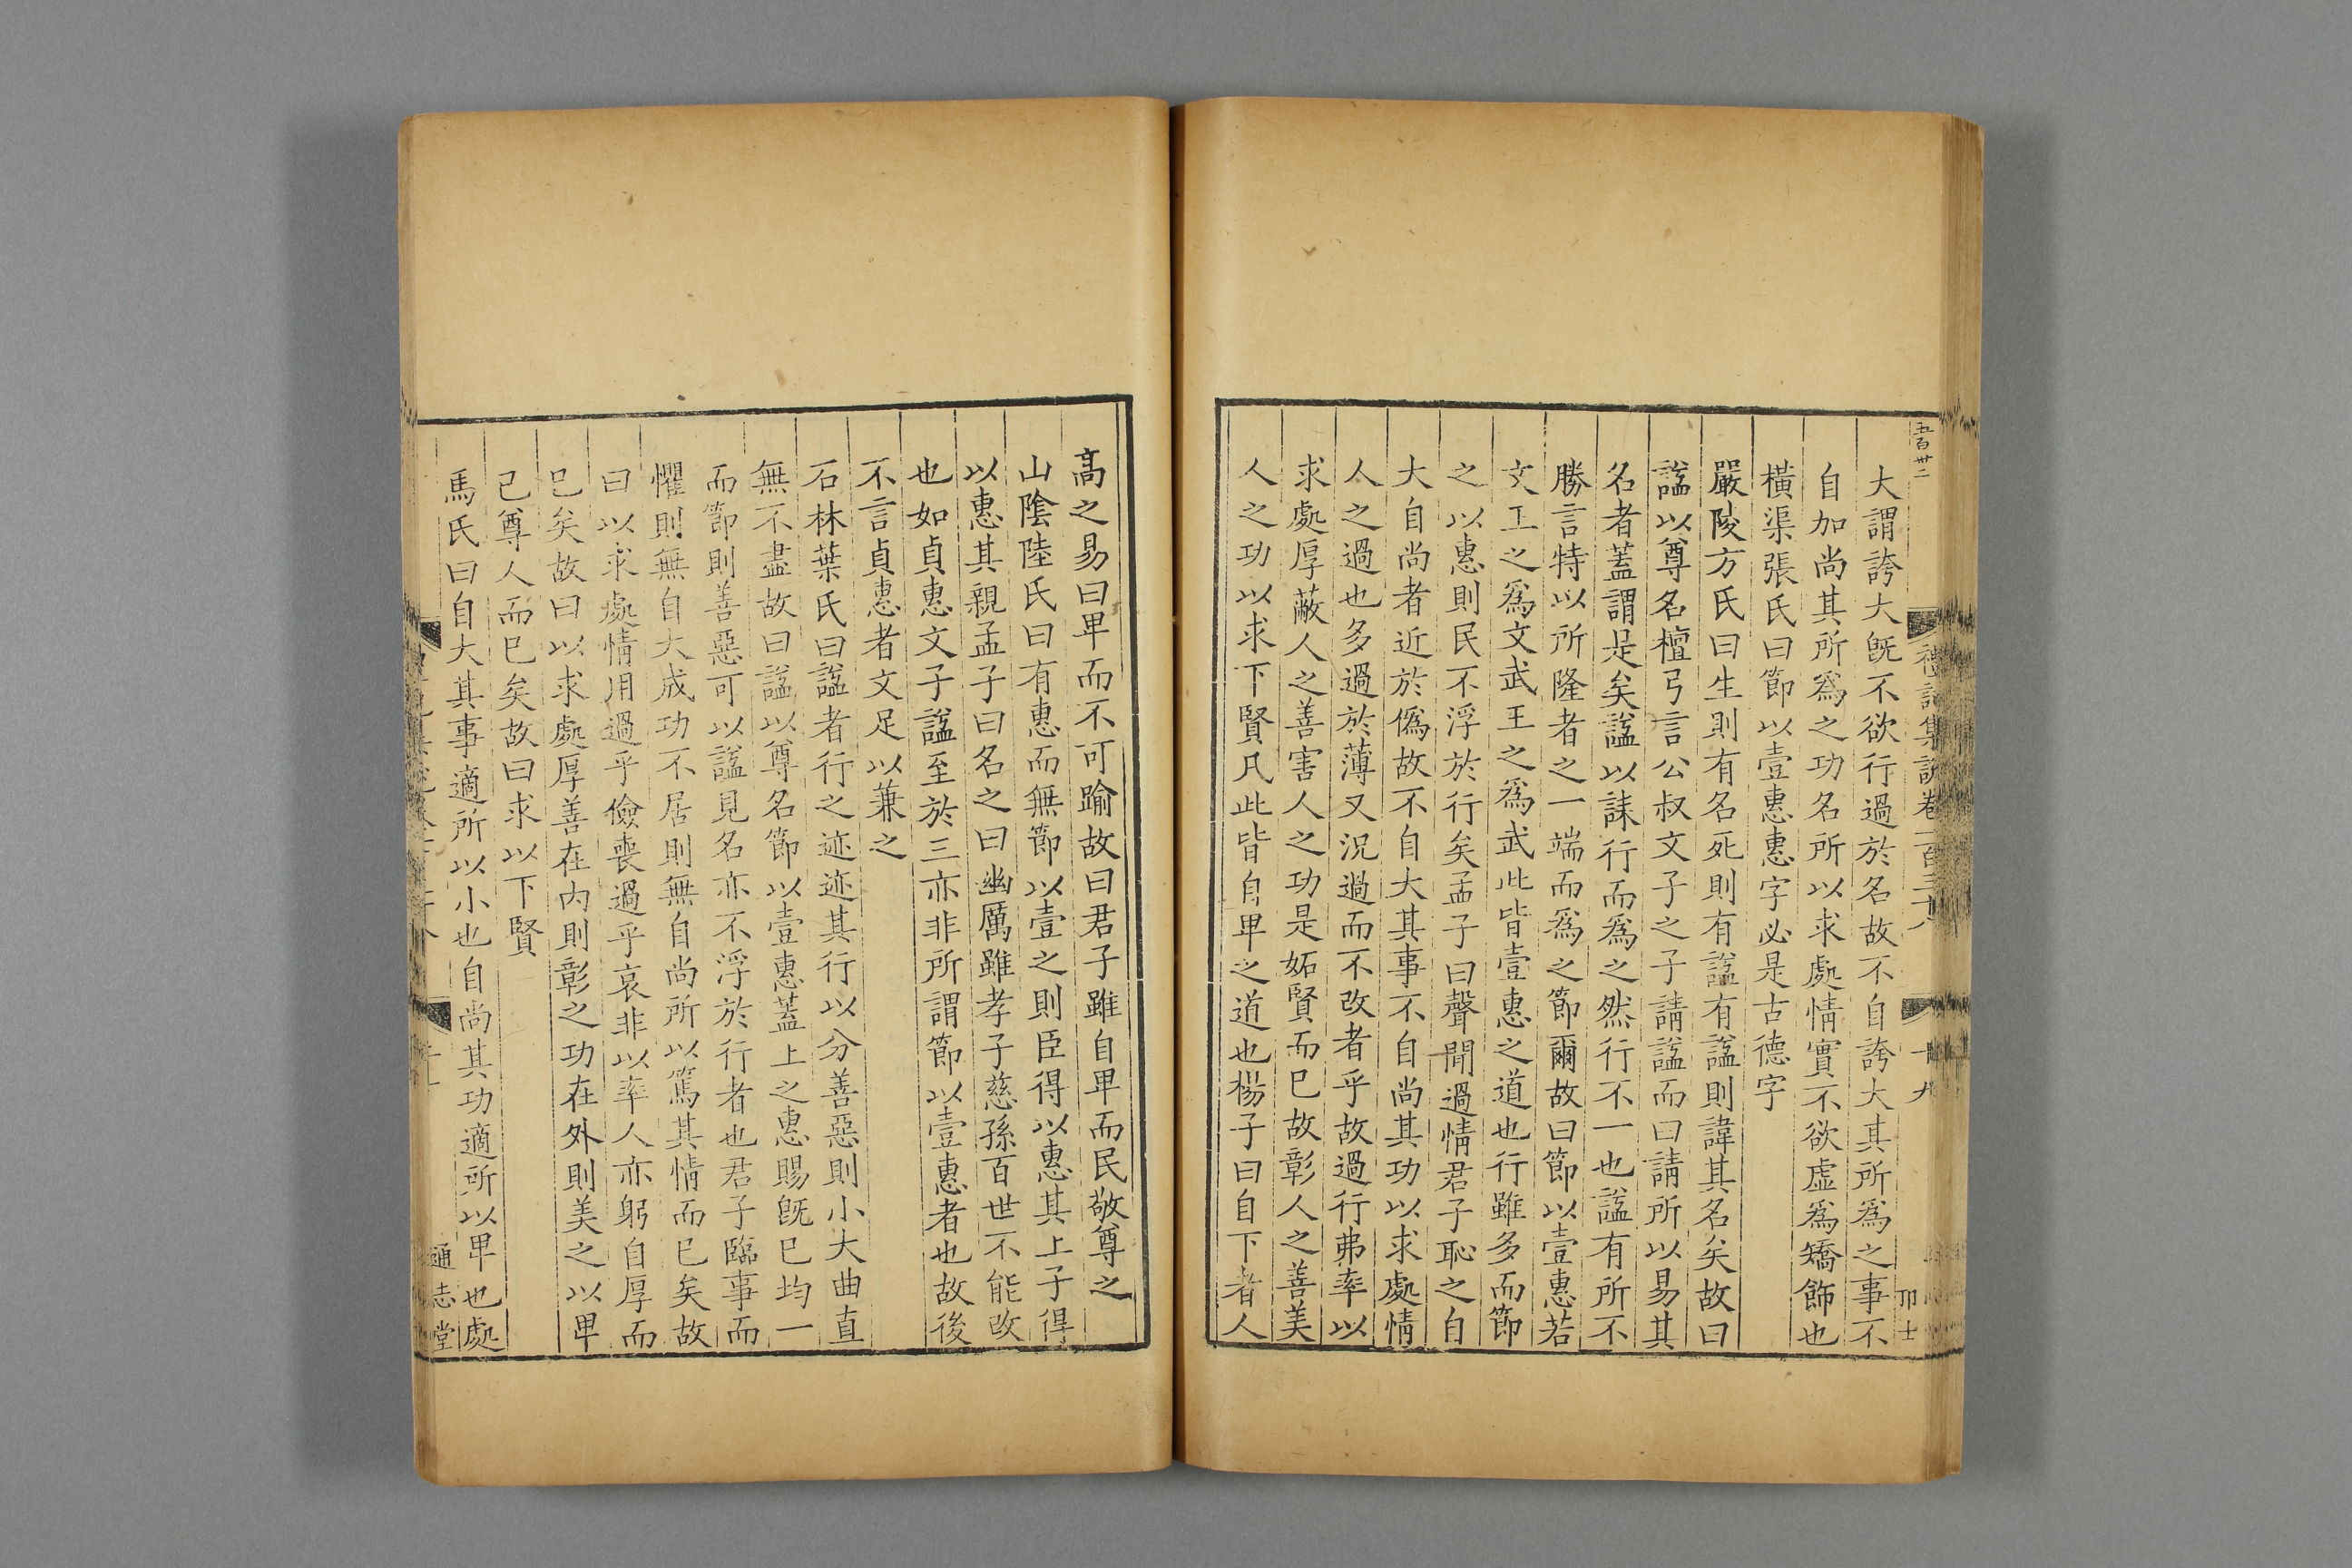 五百卅二
大謂誇大旣不欲行過於名故不自誇大其所爲之事不
自加尚其所爲之功名所以求處情實不欲虛爲矯飾也
橫渠張氏曰節以壹惠惠字必是古德字
嚴陵方氏曰生則有名死則有諡有諡則諱其名矣故曰
諡以尊名檀弓言公叔文子之子請諡而曰請所以易其
名者蓋謂是矣諡以誄行而爲之然行不一也諡有所不
勝言特以所隆者之一端而爲之節爾故曰節以壹惠若
文王之爲文武王之爲武此皆壹惠之道也行雖多而節
之以惠則民不浮於行矣孟子曰聲聞過情君子恥之自
大自尚者近於僞故不自大其事不自尚其功以求處情
人之過也多過於薄又況過而不改者乎故過行弗率以
求處厚蔽人之善害人之功是妬賢而巳故彰人之善美
人之功以求下賢凡此皆自卑之道也楊子曰自下者人
禮記集說卷一百三十八
十九
卭士
高之易曰卑而不可踰故曰君子雖自卑而民敬尊之
山陰陸氏曰有惠而無節以壹之則臣得以惠其上子得
以惠其親孟子曰名之曰幽厲雖孝子慈孫百世不能改
也如貞惠文子諡至於三亦非所謂節以壹惠者也故後
不言貞惠者文足以兼之
石林葉氏曰諡者行之迹迹其行以分善惡則小大曲直
無不盡故曰諡以尊名節以壹惠蓋上之惠賜旣巳均一
而節則善惡可以諡見名亦不浮於行者也君子臨事而
懼則無自大成功不居則無自尚所以篤其情而巳矣故
曰以求處情用過乎儉喪過乎哀非以率人亦躬自厚而
巳矣故曰以求處厚善在內則彰之功在外則美之以卑
己尊人而巳矣故曰求以下賢
馬氏曰自大其事適所以小也自尚其功適所以卑也處
通志堂